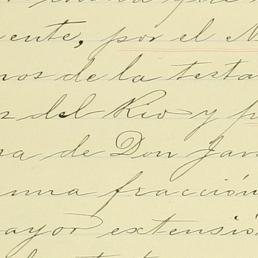 ente, por el N
nos de la testa
s del Rio y p
na de Don Jav
una fracción
ayor extensió